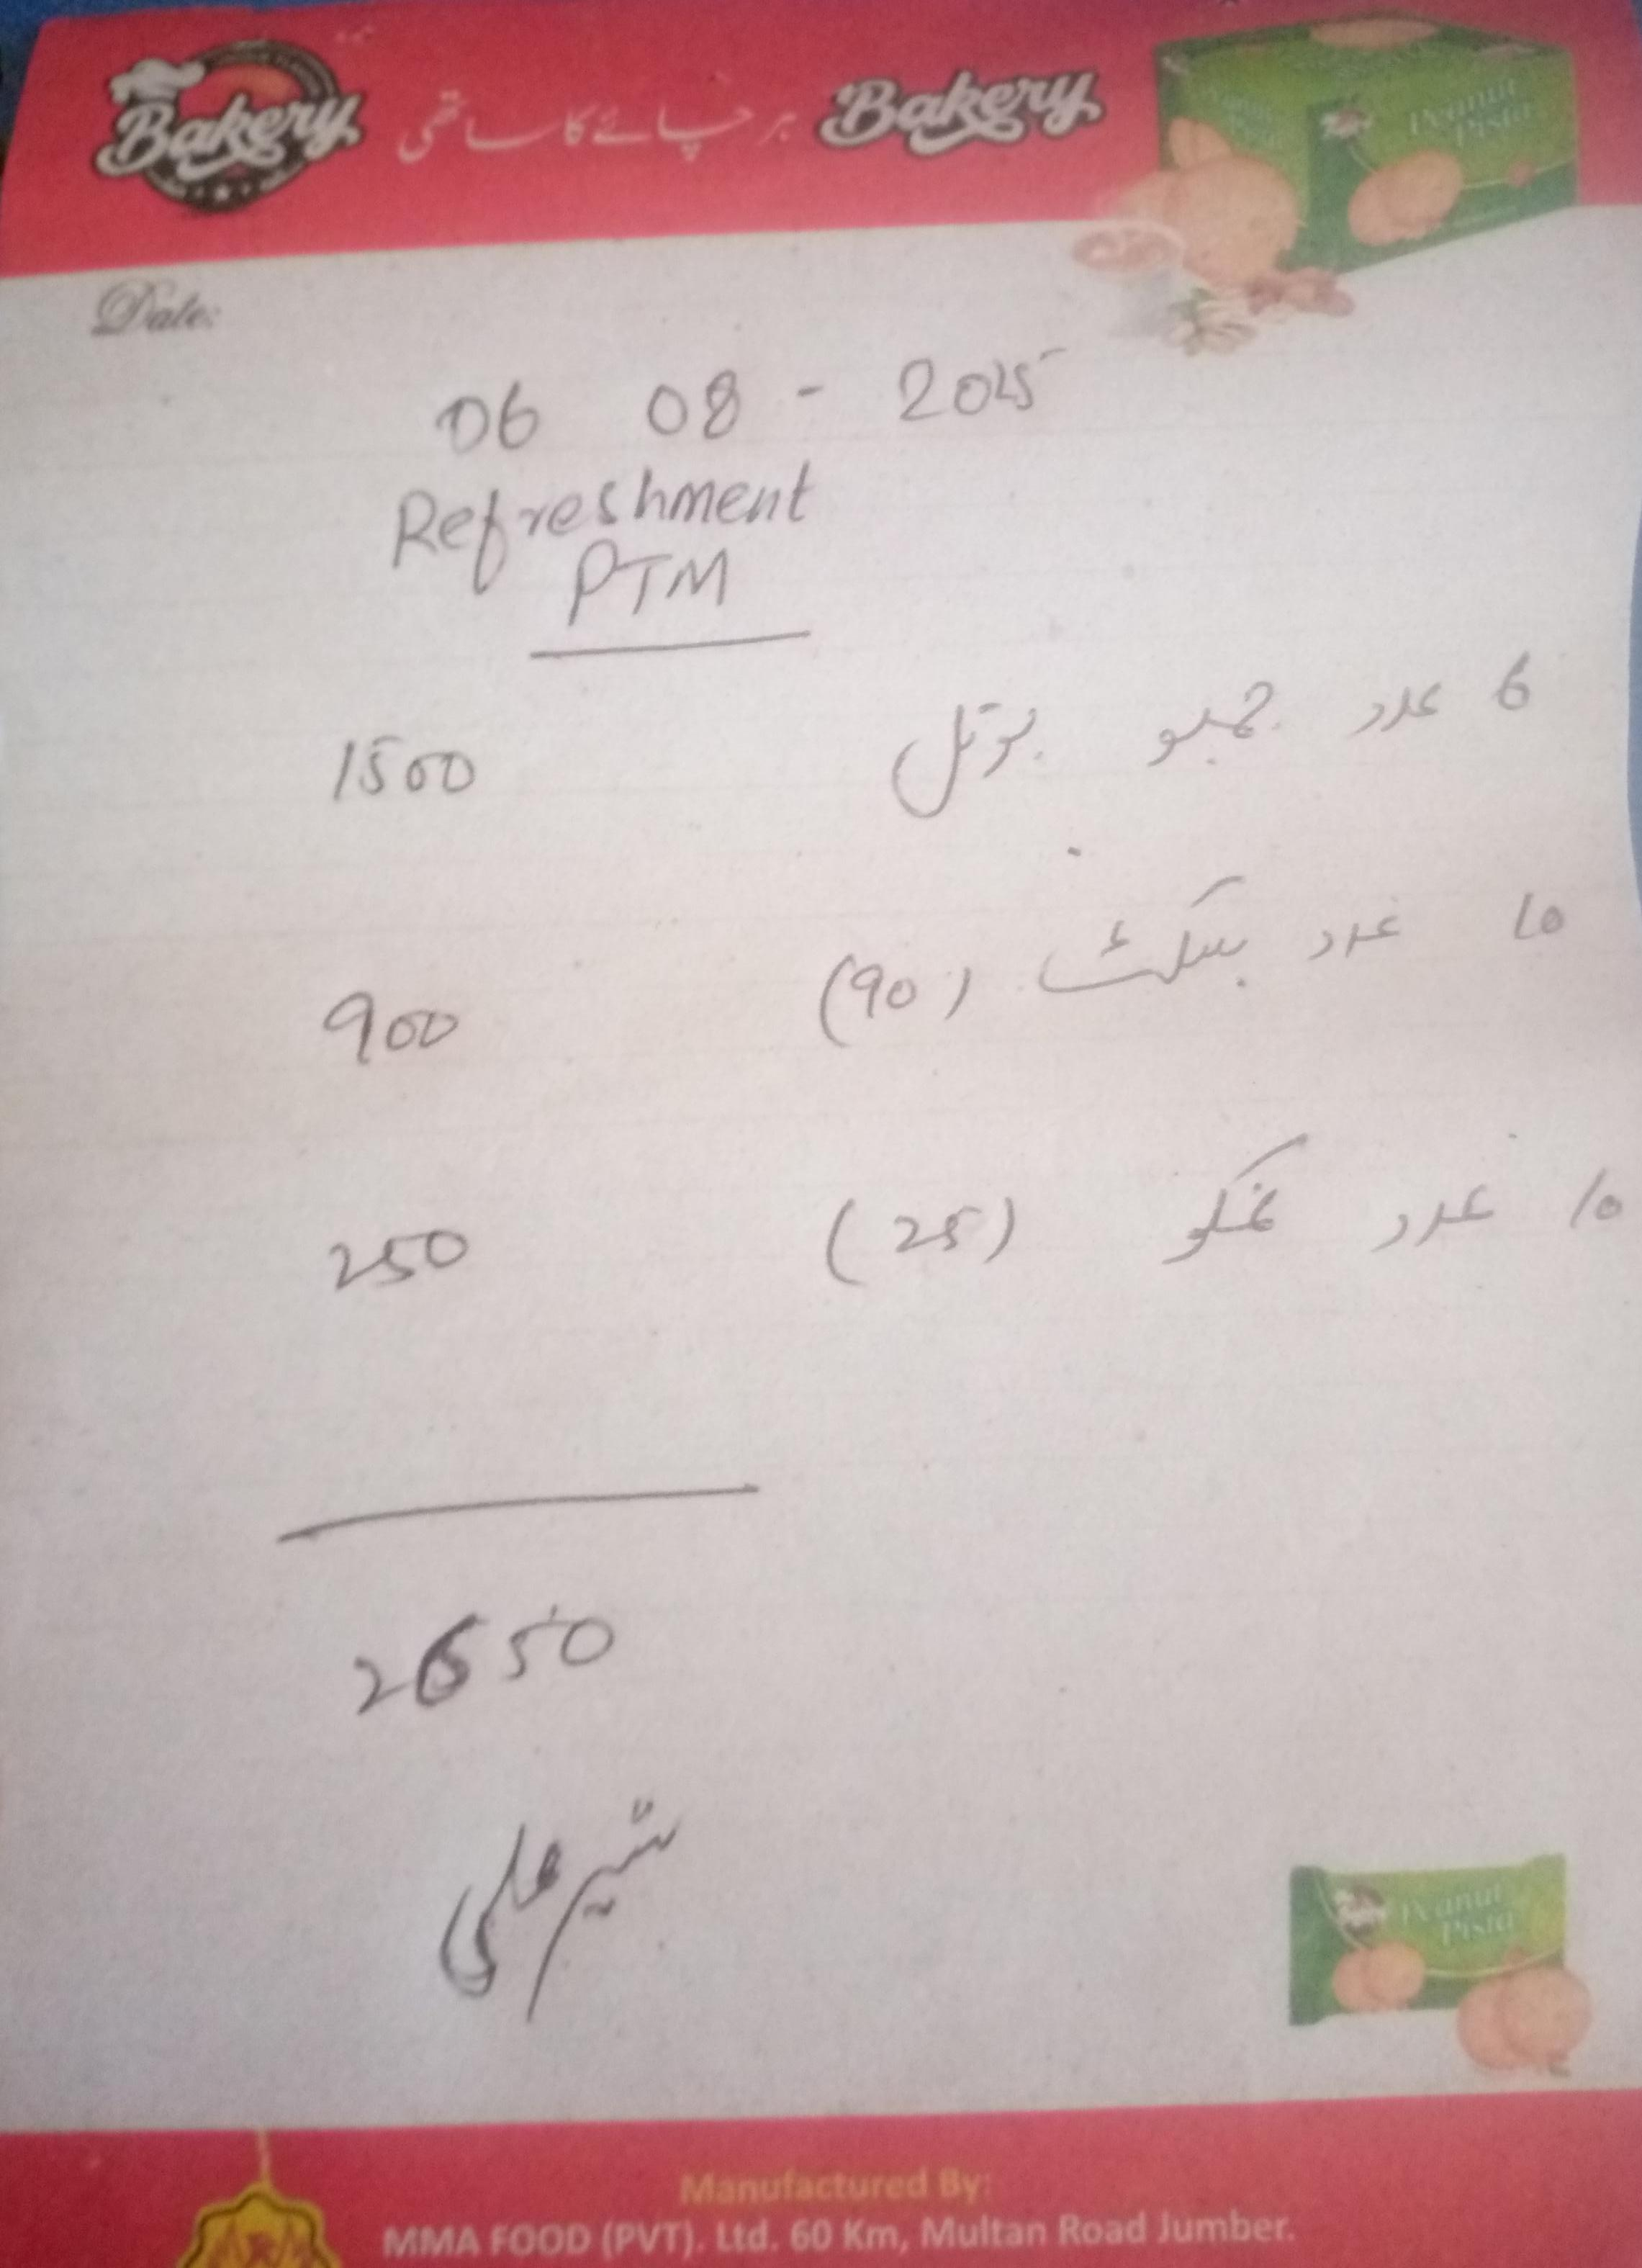 Bakery ہر چائے کا ساتھی Bakery
Peanut Pista
Date:
06 08 - 2025
Refreshment
PTM
6 عدد جمبو بوتل 1500
10 عدد بسکٹ (90) 900
10 عدد نمکو (25) 250
2650
شیر علی
Peanut Pista
Manufactured By:
MMA FOOD (PVT). Ltd. 60 Km, Multan Road Jumber.